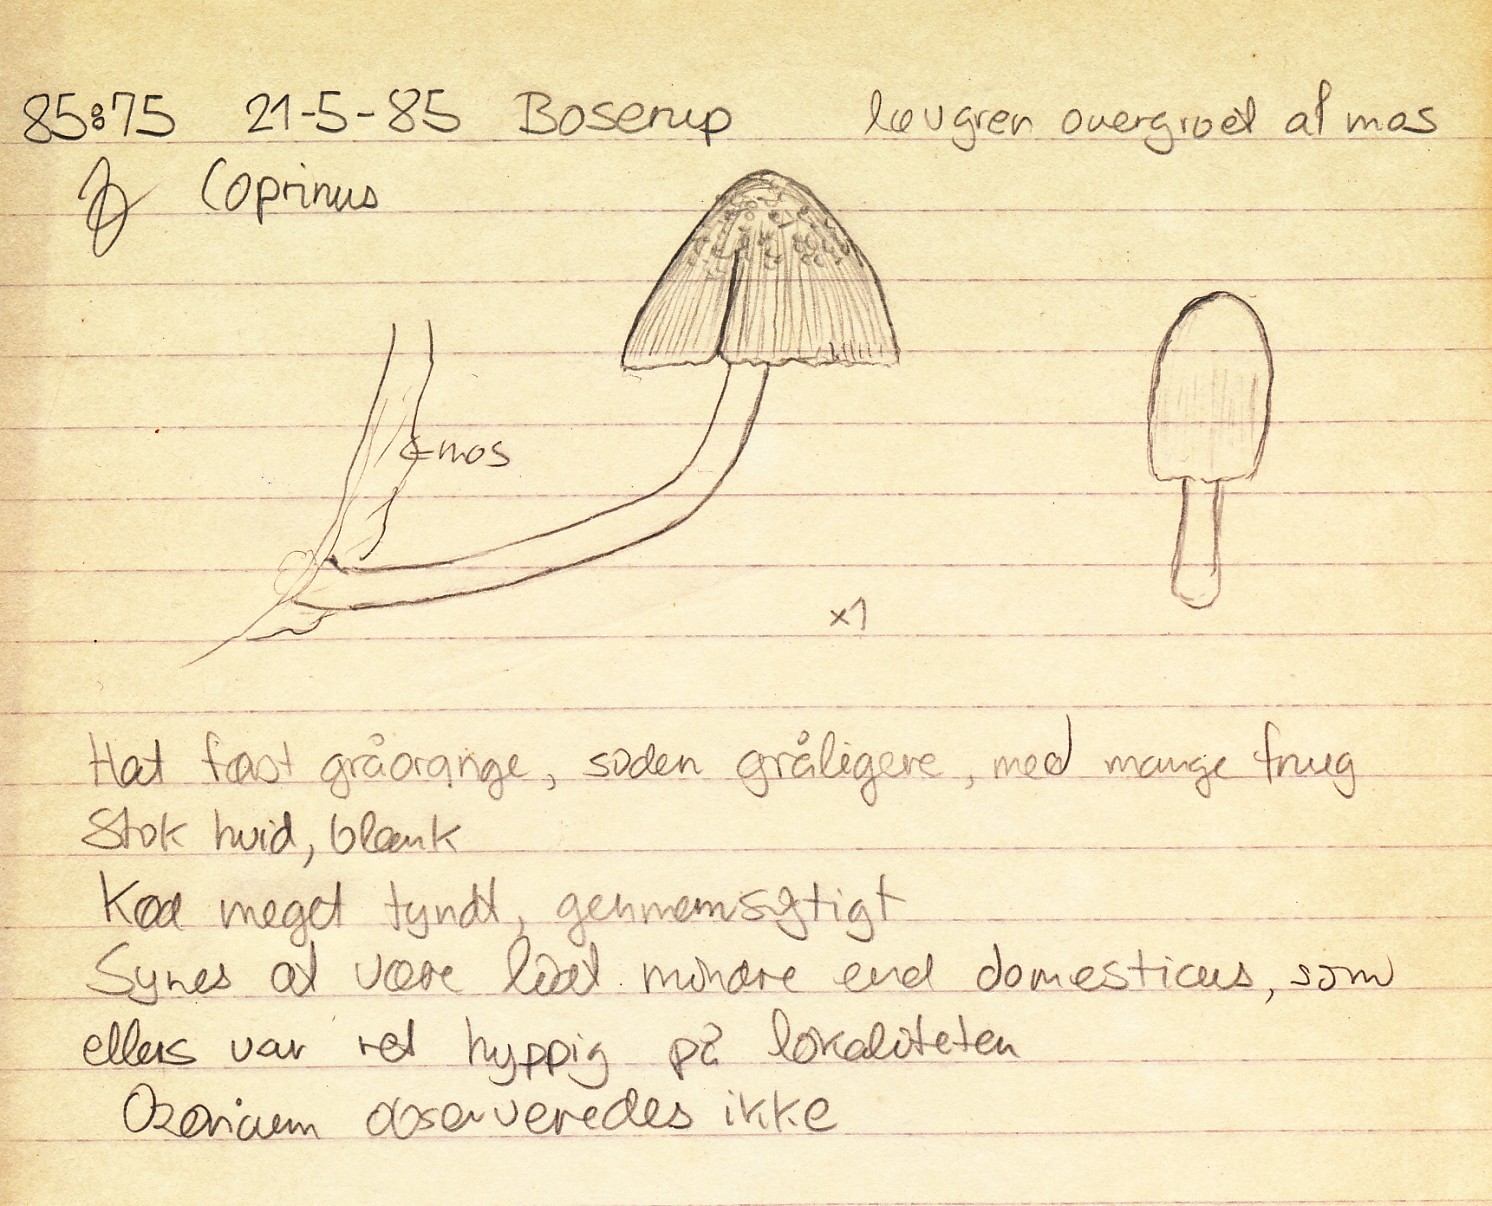 85:75 21-5-85 Boserup løvgren overgroet af mos
Coprinus
mos
x1
Hat først gråorange, siden gråligere, med mange fnug
Stok hvid, blank
Kød meget tyndt, gennemsigtigt
Synes at være lidt mindre end domesticus, som
ellers var ret hyppig på lokaliteten
Ozonium observeredes ikke